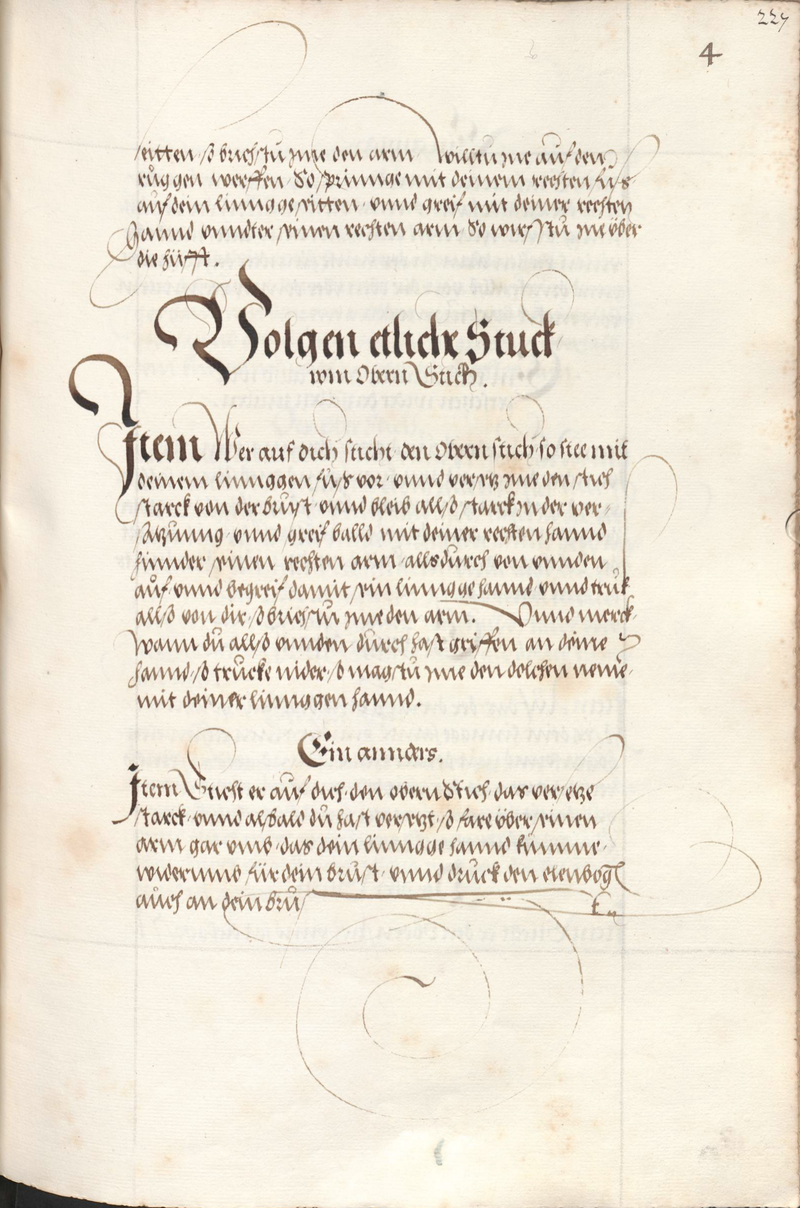 227
4
seitten, so brichstu yme den arm Willtu yne auf den
ruggen werffen So sprinnge mit deinem rechten fuͤs
auf dein lingge seitten, vnnd greif mit deiner rechten
Hannd vnndter seinen rechten arm So wirfstu yne v̈ber
die hüfft.
Volgen etliche Stuck
vom Obern Stich.
Item Wer auf dich sticht den Obern stich so stee mit
deinem linnggen fuͤs vor, vnnd versetz yme den stich
starck von der brust, vnnd bleib allso starck in der ver-
satzunng, vnnd greif balld mit deiner rechten hannd
hinnder seinen rechten arm, alls durch von vnnden
auf, vnnd begreif damit sein linngge hannd vnnd truck
allso von dir, so brichstu yme den arm. Vnnd merck
Wann du allso vnnden durch hast griffen an deine
hannd, so trucke nider, so magstu yme den dolchen neme
mit deiner linnggen hannd.
Ein annders.
Item Sticht er auf dich, den obern Stich das versetze
starck, vnnd alsbald du hast versetzt, so fare v̈ber seinen
arm gar vmb, das dein linngge hannd kumme
widerumb für dein brust, vnnd druck den elenbogē
auch an dein brust